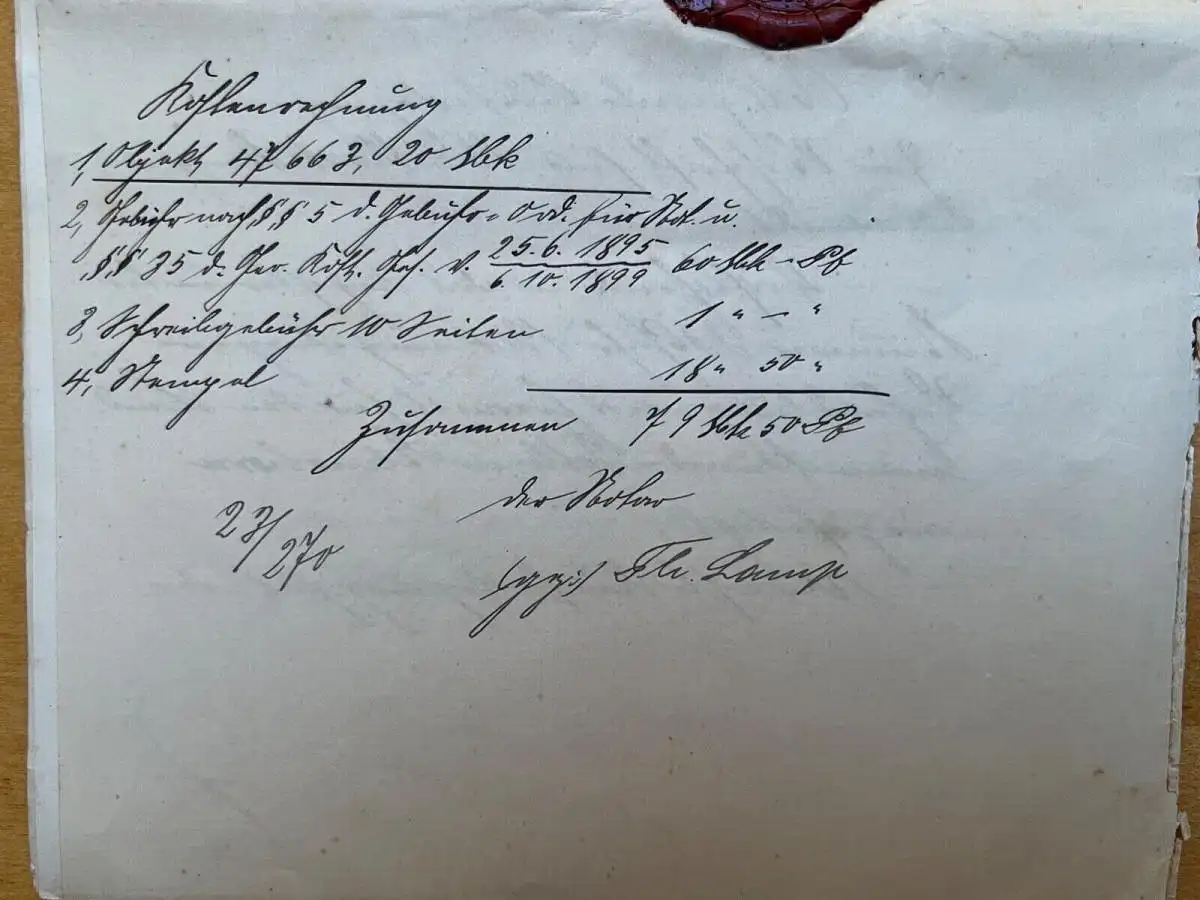 Kostenrechnung
1, Objekt 47663, 20 Mk
2, Gebühr nach §§ 5 d. Gebühr=Ord. für Not. u.
§§ 35 d. Ger. Kost. Ges. v. 25.6.1895 / 6.10.1899 60 Mk – Pf
3, Schreibgebühr 10 Seiten 1 " – "
4, Stempel 18 " 50 "
Zusammen 79 Mk 50 Pf
der Notar
23/270
(gez) Th. Lamp